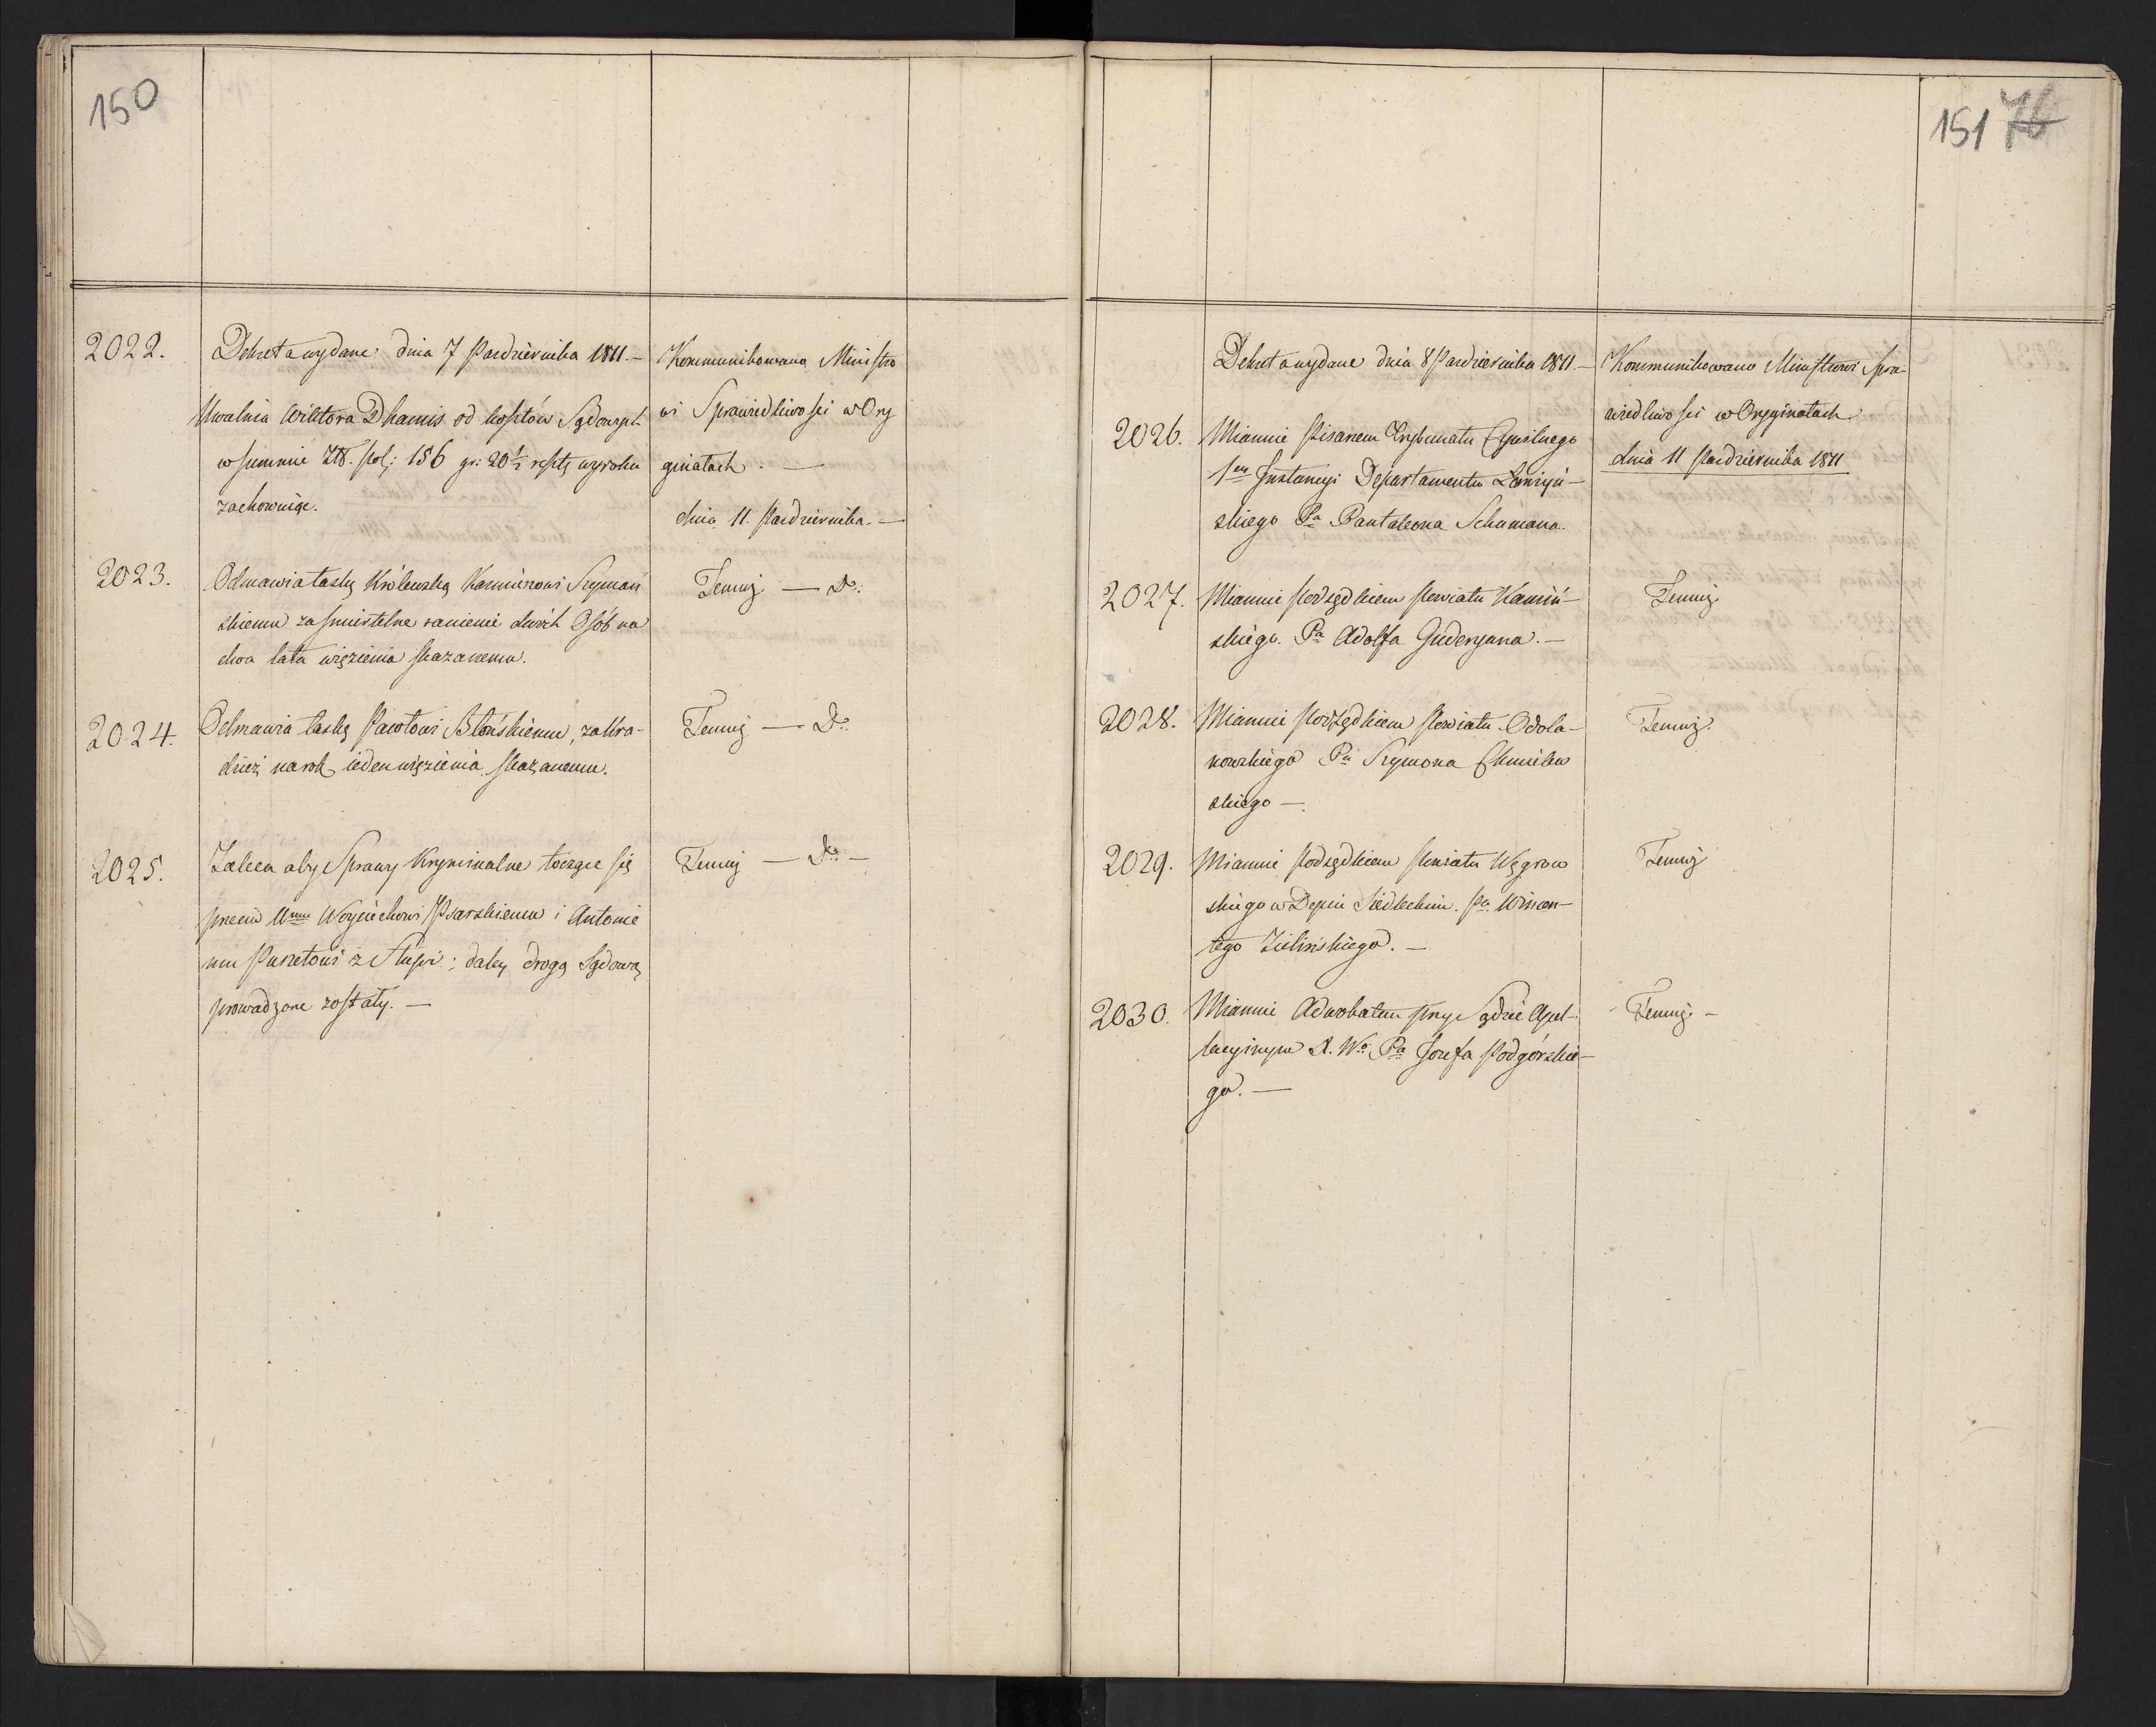 150
2022.
Dekreta wydane dnia 7 Pazdziernika 1811.—
Uwalnia Wiktora Dhamis od kosztów Sądowych
w summie Złł. pol: 156 gr: 20½ resztę wyroku
zachowuiąc.
Kommunikowano Ministro
wi Sprawiedliwości w Ory
ginałach. —
dnia 11. Pazdziernika. —
2023.
Odmawia łaskę Królewską Kazmierzowi Szymań
skiemu za smiertelne ranienie dwóch Osób na
dwa lata więzienia skazanemu.
Temuż — Do:
2024.
Odmawia łaskę Pawłowi Błońskiemu, za kra-
dzież na rok ieden więzienia skazanemu.
Temuż — Do:
2025.
Zaleca aby Sprawy Kryminalne toczące się
przeciw Woyciechowi Psarskiemu i Antonie
mu z Słupi; daley drogą Sądową
prowadzone zostały. —
Temuż — Do: —
151 76
Dekreta wydane dnia 8 Pazdziernika 1811.—
Kommunikowano Ministrowi Spra-
wiedliwości w Oryginałach
dnia 11 Pazdziernika 1811
2026.
Mianuie Pisarzem Trybunału Cywilnego
1ey Instancyi Departamentu Łomżyń-
skiego Pa Pantaleona Schumana.
2027.
Mianuie Podsędkiem Powiatu Kamiń-
skiego. Pa Adolfa Guderyana. —
Temuż
2028.
Mianuie Podsędkiem Powiatu Odola-
nowskiego Pa Szymona Chmielew
skiego —
Temuż.
2029.
Mianuie Podsędkiem Powiatu Węgrow
skiego w Depcie Siedleckim. Pa Wincen-
tego Zielińskiego. —
Temuż
2030.
Mianuie Adwokatem przy Sądzie Apel-
lacyinym X. Wo Pa Jozefa Podgórskie-
go. —
Temuż. —